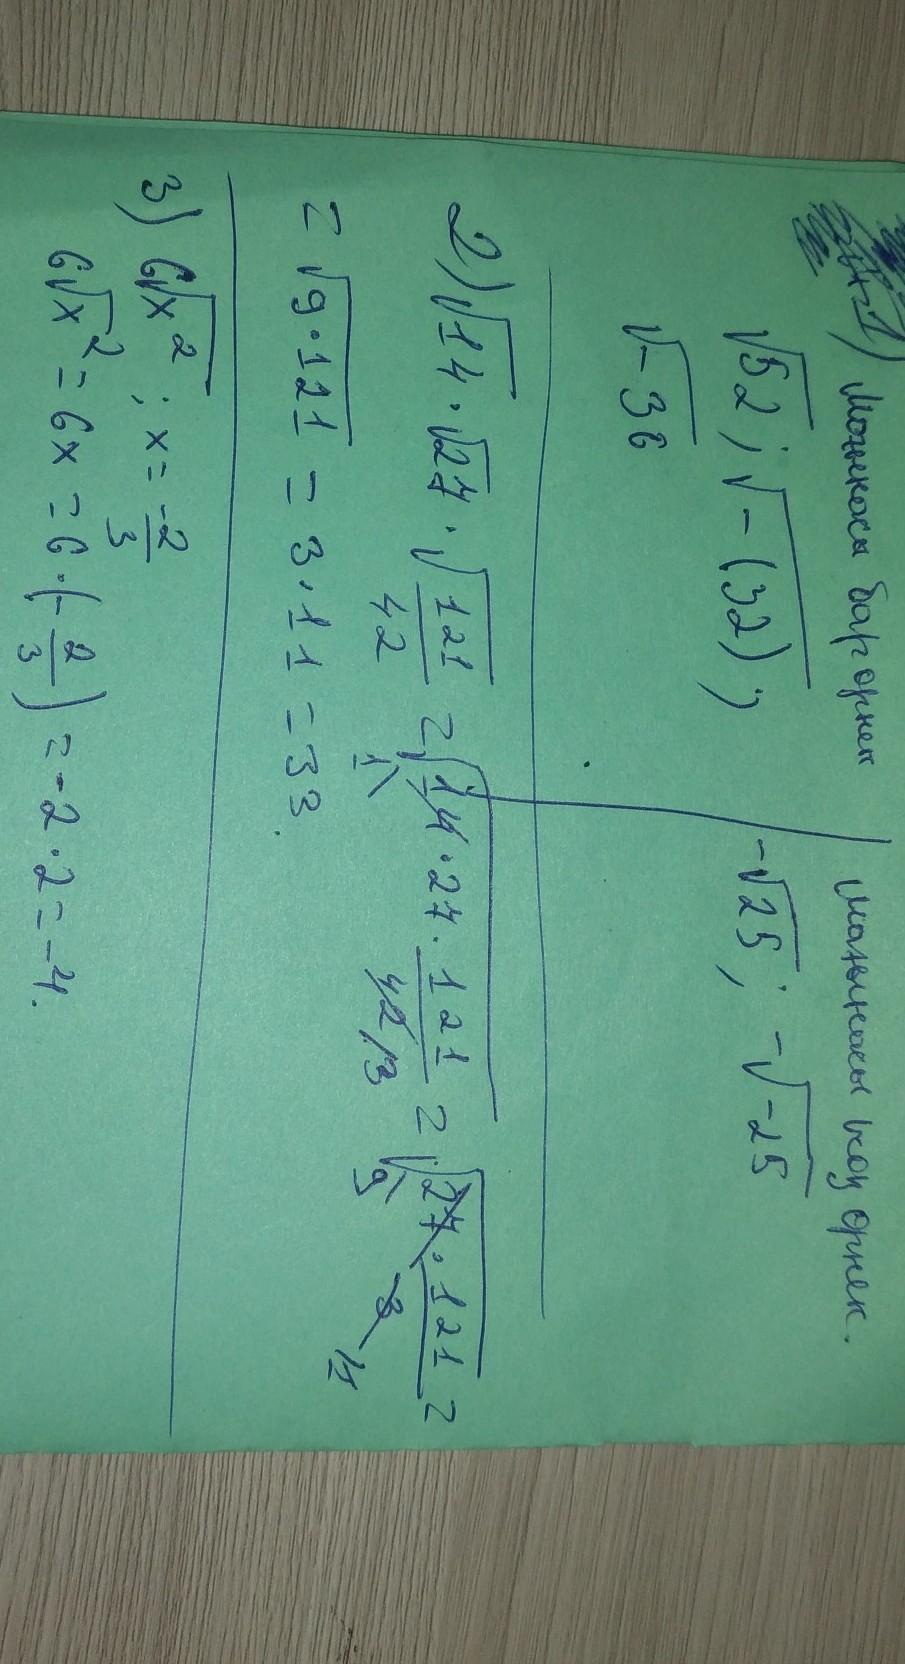 1) Мағынасы бар өрнек | мағынасы жоқ өрнек.
√52 ; √-(32) ; | -√25 ; -√-25
√-36
2) √14 · √27 · √121/42 = √14 · 27 · 121/42 = √27 · 121/3 =
1 3 9 1
= √9·121 = 3·11 = 33.
3) 6√x² ; x = -2/3
6√x² = 6x = 6·(-2/3) = -2·2 = -4.